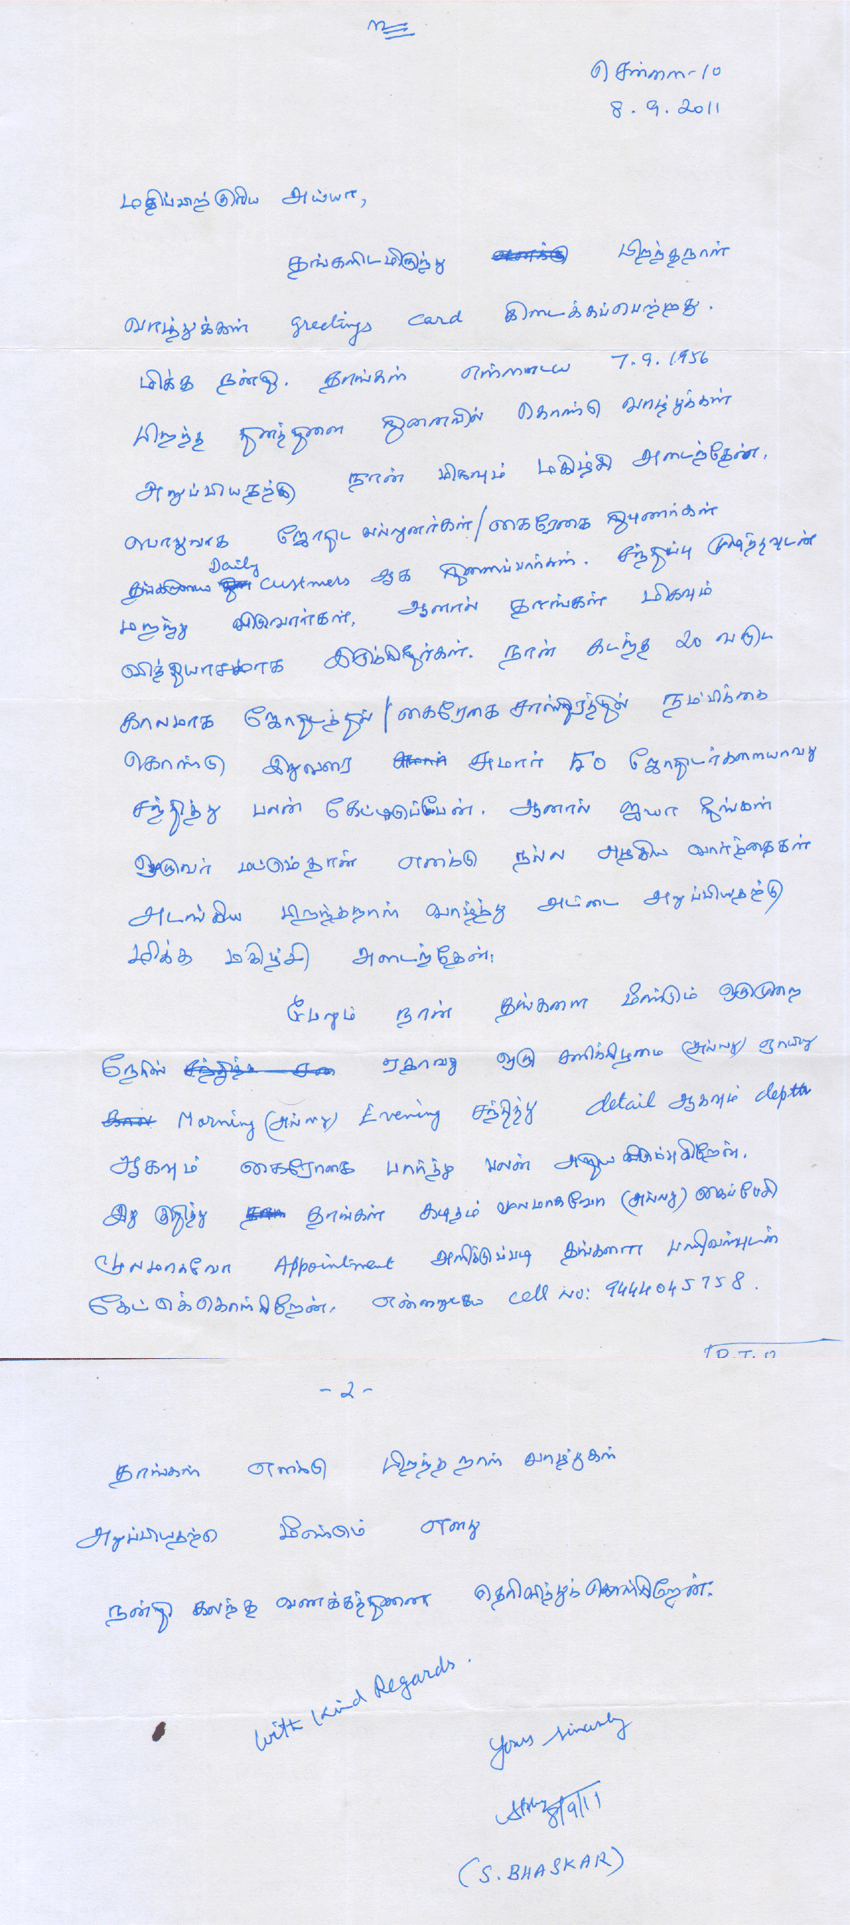 உ
சென்னை-10
8.9.2011
மதிப்பிற்குரிய அய்யா,
தங்களிடமிருந்து பிறந்தநாள்
வாழ்த்துக்கள் greetings card கிடைக்கப்பெற்றது.
மிக்க நன்றி. தாங்கள் என்னுடைய 7.9.1956
பிறந்த தினத்தினை நினைவில் கொண்டு வாழ்த்துக்கள்
அனுப்பியதற்கு நான் மிகவும் மகிழ்ச்சி அடைந்தேன்.
பொதுவாக ஜோதிட வல்லுனர்கள்/கைரேகை நிபுணர்கள்
தங்களை Daily customers ஆக நினைப்பார்கள். சந்திப்பு முடிந்தவுடன்
மறந்து விடுவார்கள். ஆனால் தாங்கள் மிகவும்
வித்தியாசமாக இருக்கிறீர்கள். நான் கடந்த 20 வருட
காலமாக ஜோதிடத்தில்/கைரேகை சாஸ்திரத்தில் நம்பிக்கை
கொண்டு இதுவரை சுமார் 50 ஜோதிடர்களையாவது
சந்தித்து பலன் கேட்டிருப்பேன். ஆனால் ஐயா நீங்கள்
ஒருவர் மட்டும்தான் எனக்கு நல்ல அழகிய வார்த்தைகள்
அடங்கிய பிறந்தநாள் வாழ்த்து அட்டை அனுப்பியதற்கு
மிக்க மகிழ்ச்சி அடைந்தேன்.
மேலும் நான் தங்களை மீண்டும் ஒருமுறை
நேரில் ஏதாவது ஒரு சனிக்கிழமை (அல்லது) ஞாயிறு
Morning (அல்லது) Evening சந்தித்து detail ஆகவும் depth
ஆகவும் கைரேகை பார்த்து பலன் அறிய விரும்புகிறேன்.
இது குறித்து தாங்கள் கடிதம் மூலமாகவோ (அல்லது) கைப்பேசி
மூலமாகவோ Appointment அளிக்கும்படி தங்களை பணிவன்புடன்
கேட்டுக்கொள்கிறேன். என்னுடைய cell no: 9444045758.
P.T.O
- 2 -
தாங்கள் எனக்கு பிறந்தநாள் வாழ்த்துகள்
அனுப்பியதற்கு மீண்டும் எனது
நன்றி கலந்த வணக்கத்தினை தெரிவித்துக்கொள்கிறேன்.
With Kind Regards.
Yours sincerely
8/9/11
(S. BHASKAR)